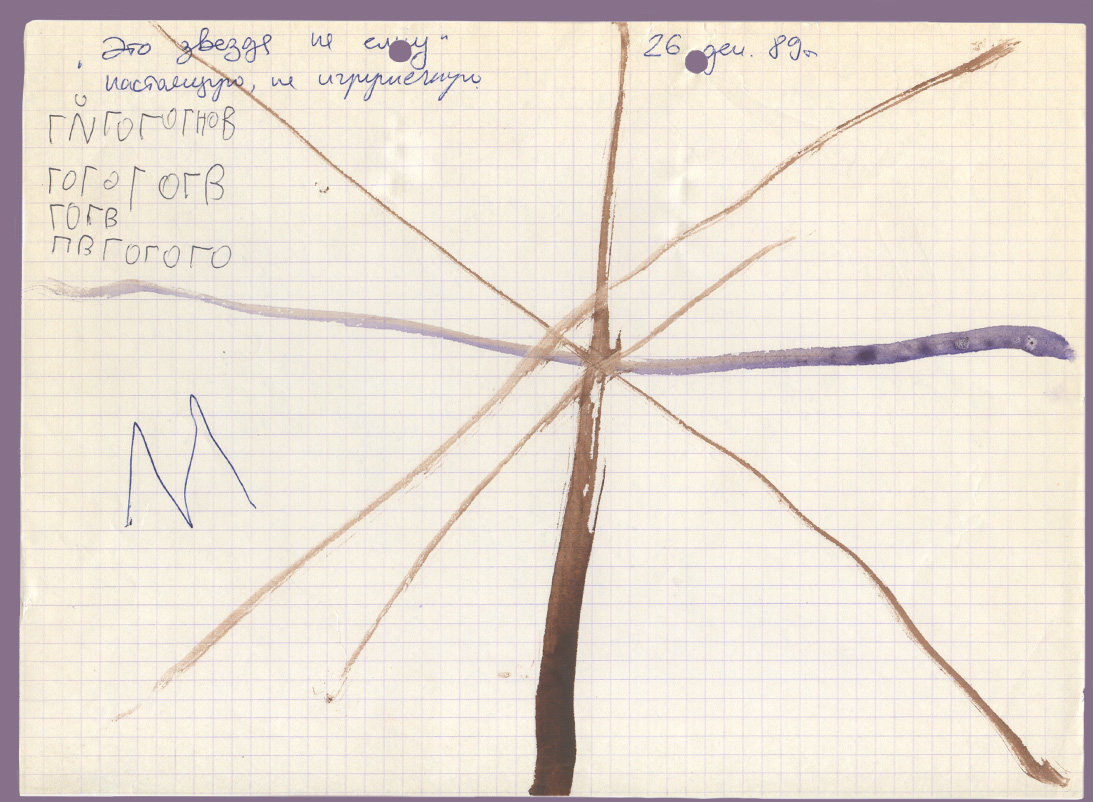 „Это звезда на елку"
настоящую, не игрушечную.
26 дек. 89 г.
ГЙГОГОГНОВ
ГОГОГОГВ
ГОГВ
ПВГОГОГО